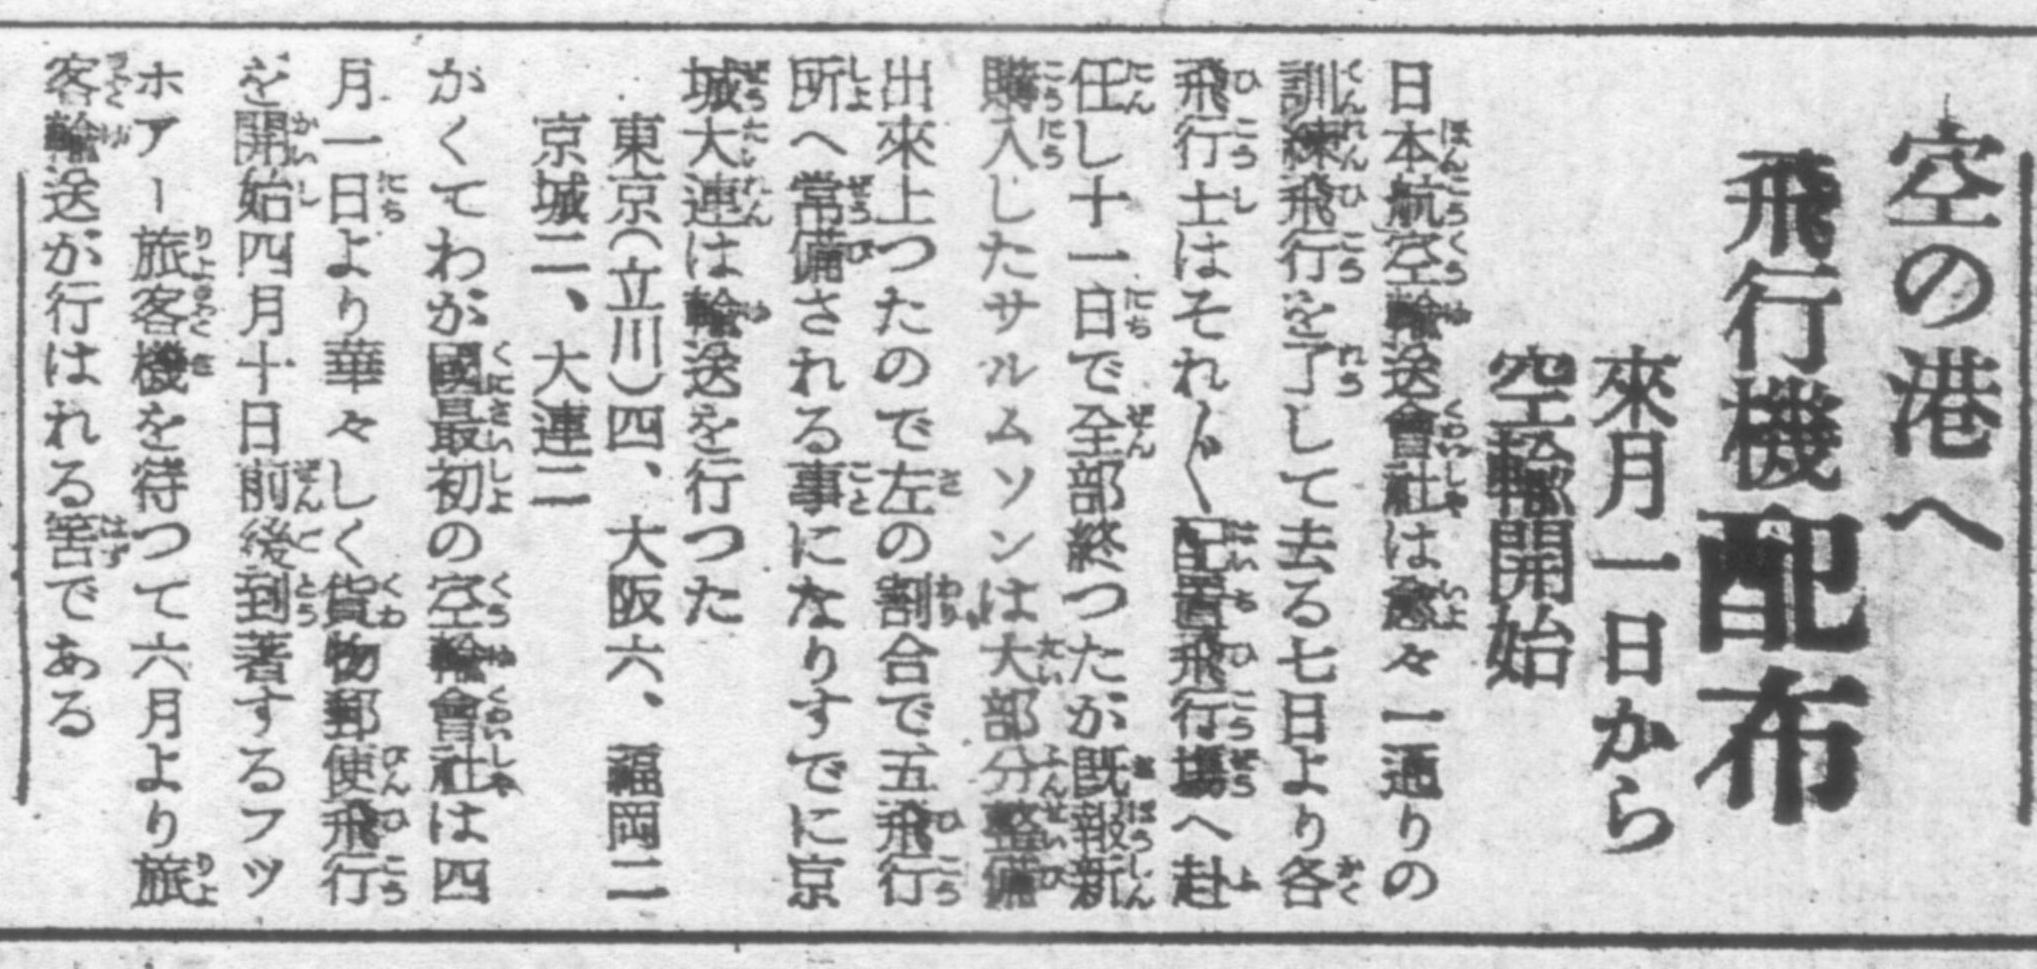 空の港へ
飛行機配布
來月一日から
空輸開始
日本航空輸送會社は愈々一通りの
訓練飛行を了して去る七日より各
飛行士はそれ〴〵配置飛行場へ赴
任し十一日で全部終つたが既報新
購入したサルムソンは大部分整備
出來上つたので左の割合で五飛行
所へ常備される事になりすでに京
城大連は輸送を行つた
東京(立川)四、大阪六、福岡二
京城二、大連二
かくてわが國最初の空輸會社は四
月一日より華々しく貨物郵便飛行
を開始四月十日前後到著するフツ
ホアー旅客機を待つて六月より旅
客輸送が行はれる筈である